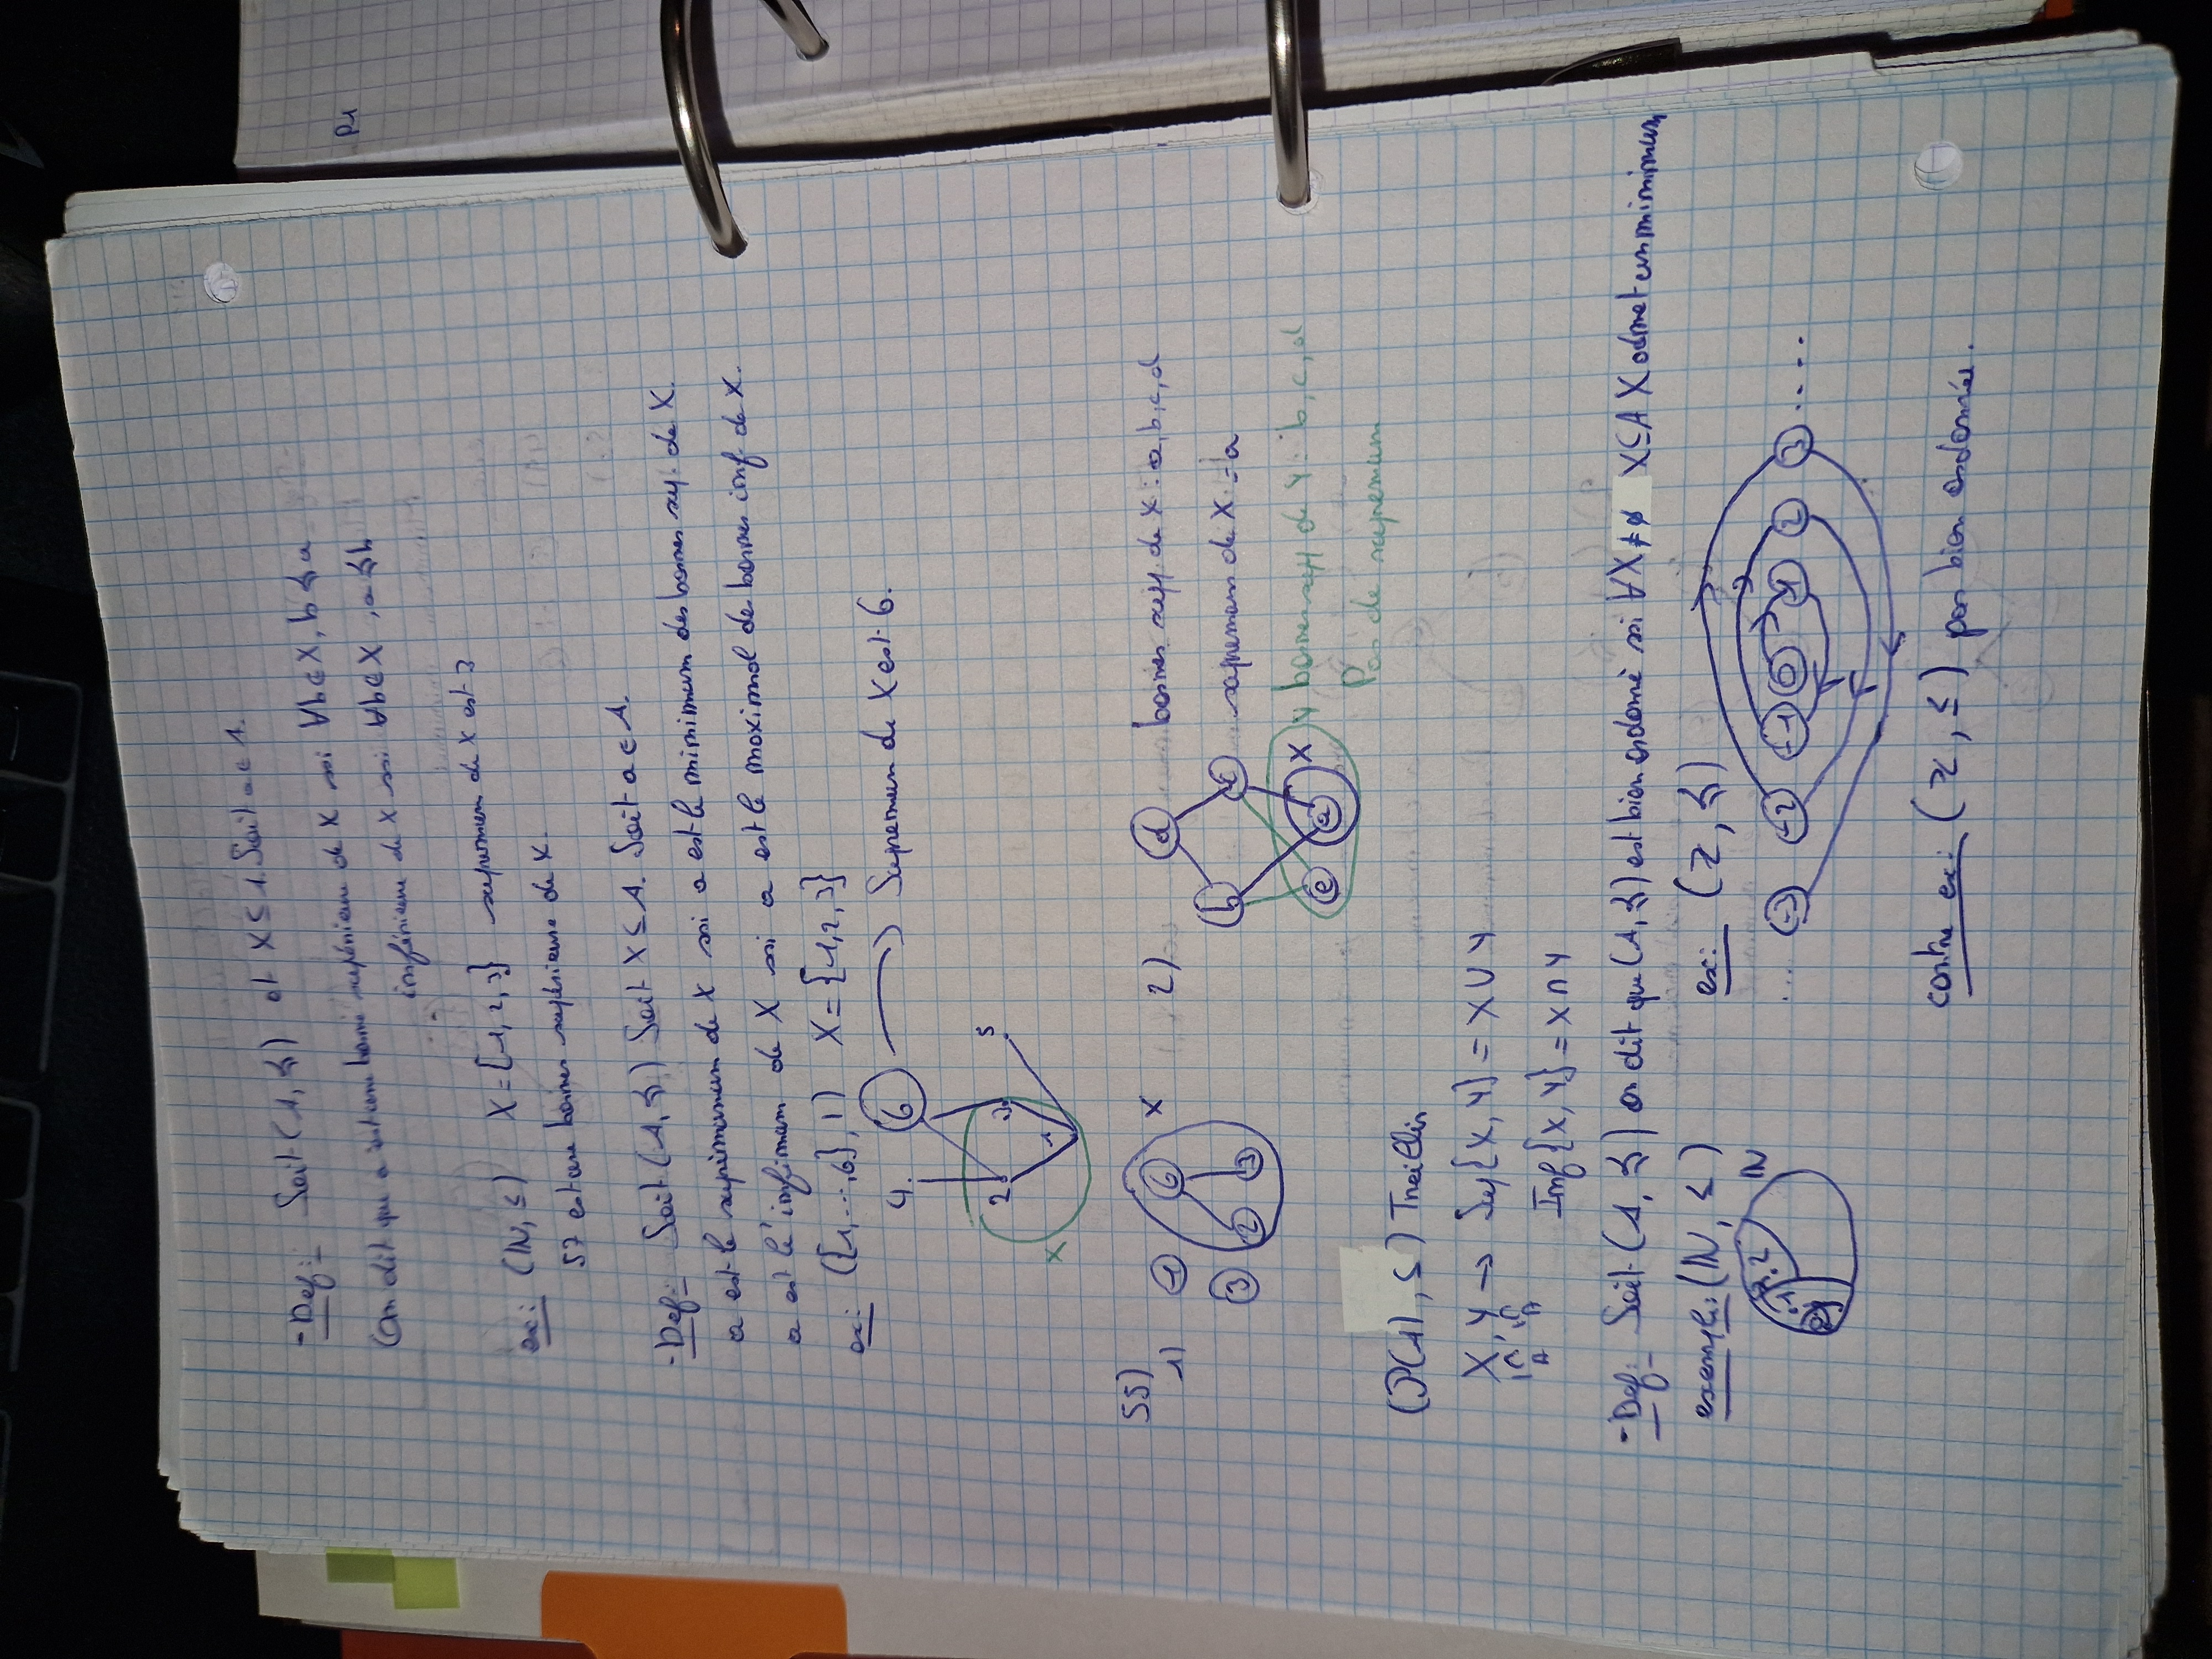 - Def: Soit (A, ≼) et X ⊆ A. Soit a ∈ A.
On dit que a est une borne supérieure de X ssi ∀b∈X, b ≼ a
inférieure de X ssi ∀b∈X, a ≼ b
ex: (ℕ, ≤) X = {1, 2, 3} supremum de X est 3
57 est une bornes supérieure de X.
- Def: Soit (A, ≼) Soit X ⊆ A. Soit a ∈ A.
a est le suprémumum de X ssi a est le minimum des bornes sup. de X.
a est l'infimum de X ssi a est le maximal des bornes inf. de X.
ex: ({1, ..., 6}, |) X = {1, 2, 3}
4. 6 Supremum de X est 6.
2 3 5
X 1
55)
1) 1 6 X
3 2 3
2) d bornes supp. de X : a, b, c, d
b c supremum de X = a
e a X Y bornes supp de Y : b, c, d
Pas de supremum
(P(A), ⊆) Treillis
X, Y → Sup{X, Y} = X ∪ Y
A A
Inf{X, Y} = X ∩ Y
- Def: Soit (A, ≼) on dit que (A, ≼) est bien ordonné ssi ∀X ≠ ∅ X ⊆ A X admet un minimum
exemple: (ℕ, ≤) ex: (ℤ, ≼)
0 .1 .2 ℕ
... -3 -2 -1 0 1 2 3 ....
contre ex: (ℤ, ≤) pas bien ordonnée.
P1